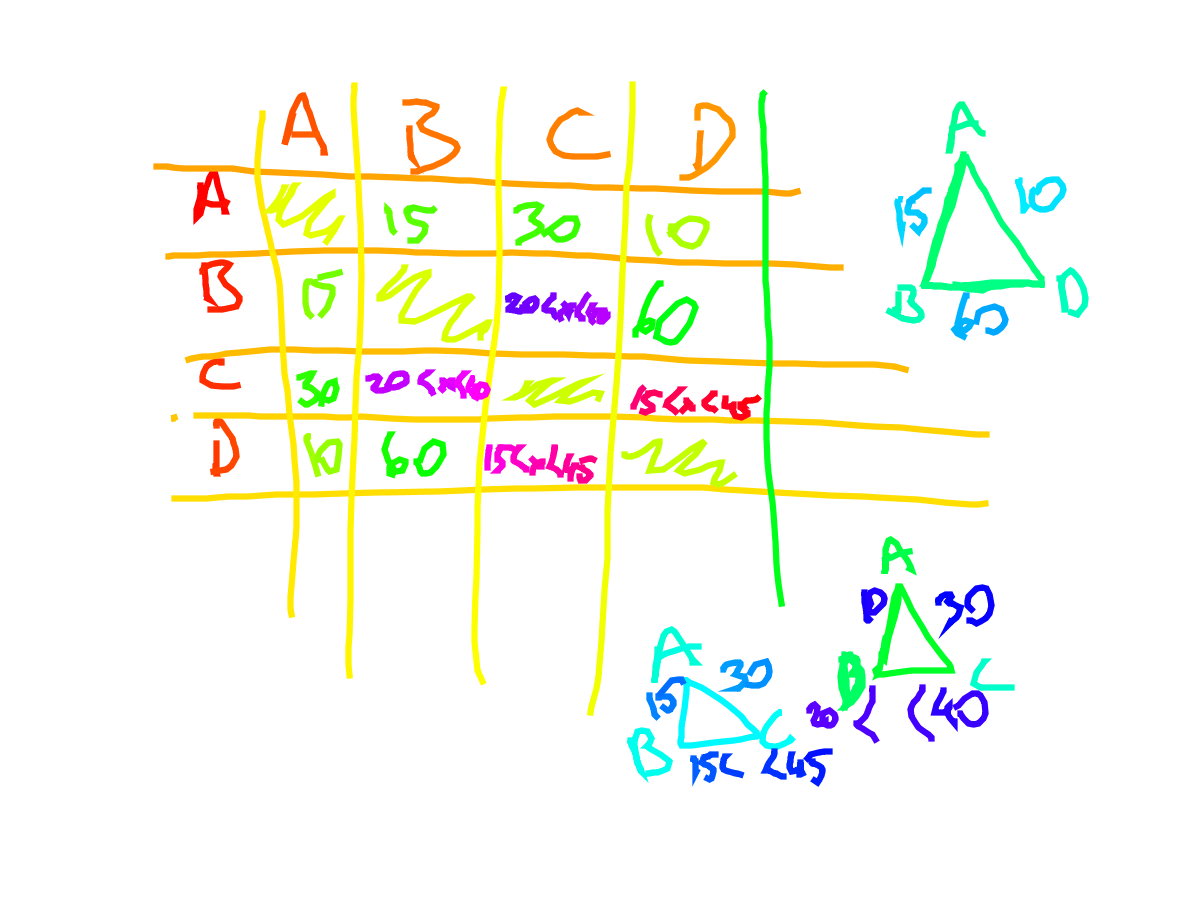 A B C D
A 15 30 10
B 15 20<x<40 60
C 30 20<x<40 15<x<45
D 10 60 15<x<45
A
15 10
B 60 D
A
10 30
D C
20< <40
A
15 30
B C
15< <45